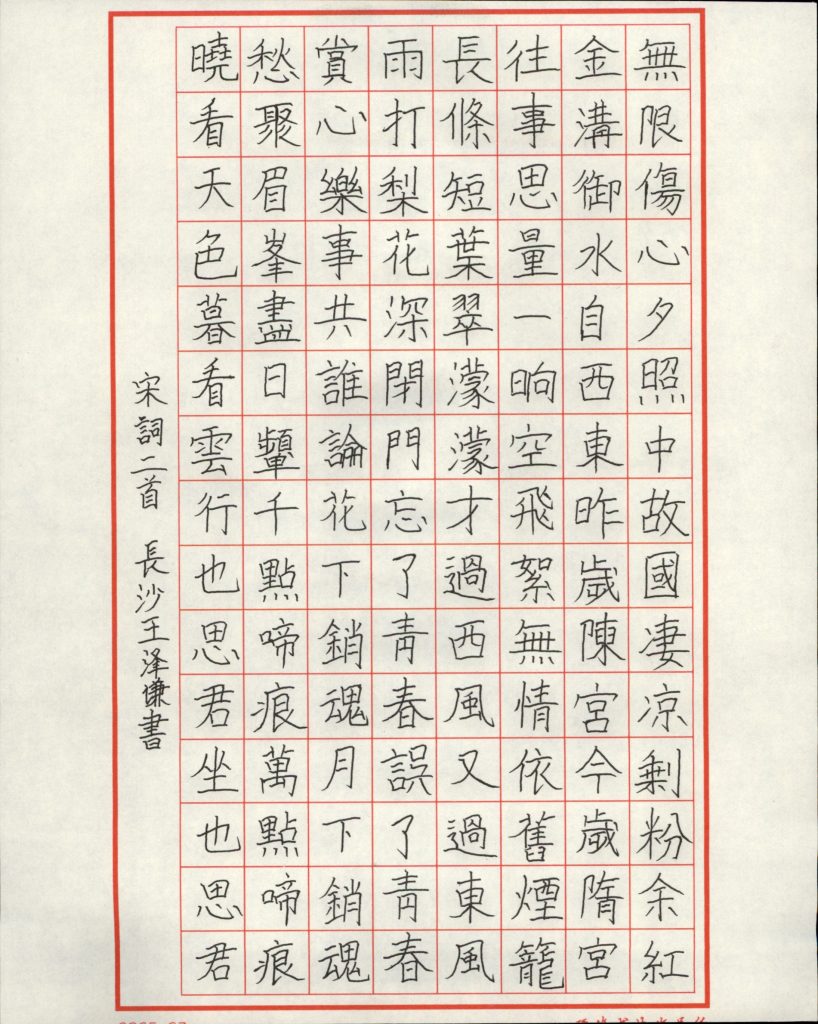 無限傷心夕照中故國凄凉剩粉余紅
金溝御水自西東昨歲陳宮今歲隋宮
往事思量一晌空飛絮無情依舊煙籠
長條短葉翠濛濛才過西風又過東風
雨打梨花深閉門忘了青春誤了青春
賞心樂事共誰論花下銷魂月下銷魂
愁聚眉峯盡日顰千點啼痕萬點啼痕
曉看天色暮看雲行也思君坐也思君
宋詞二首 長沙王泽慊書